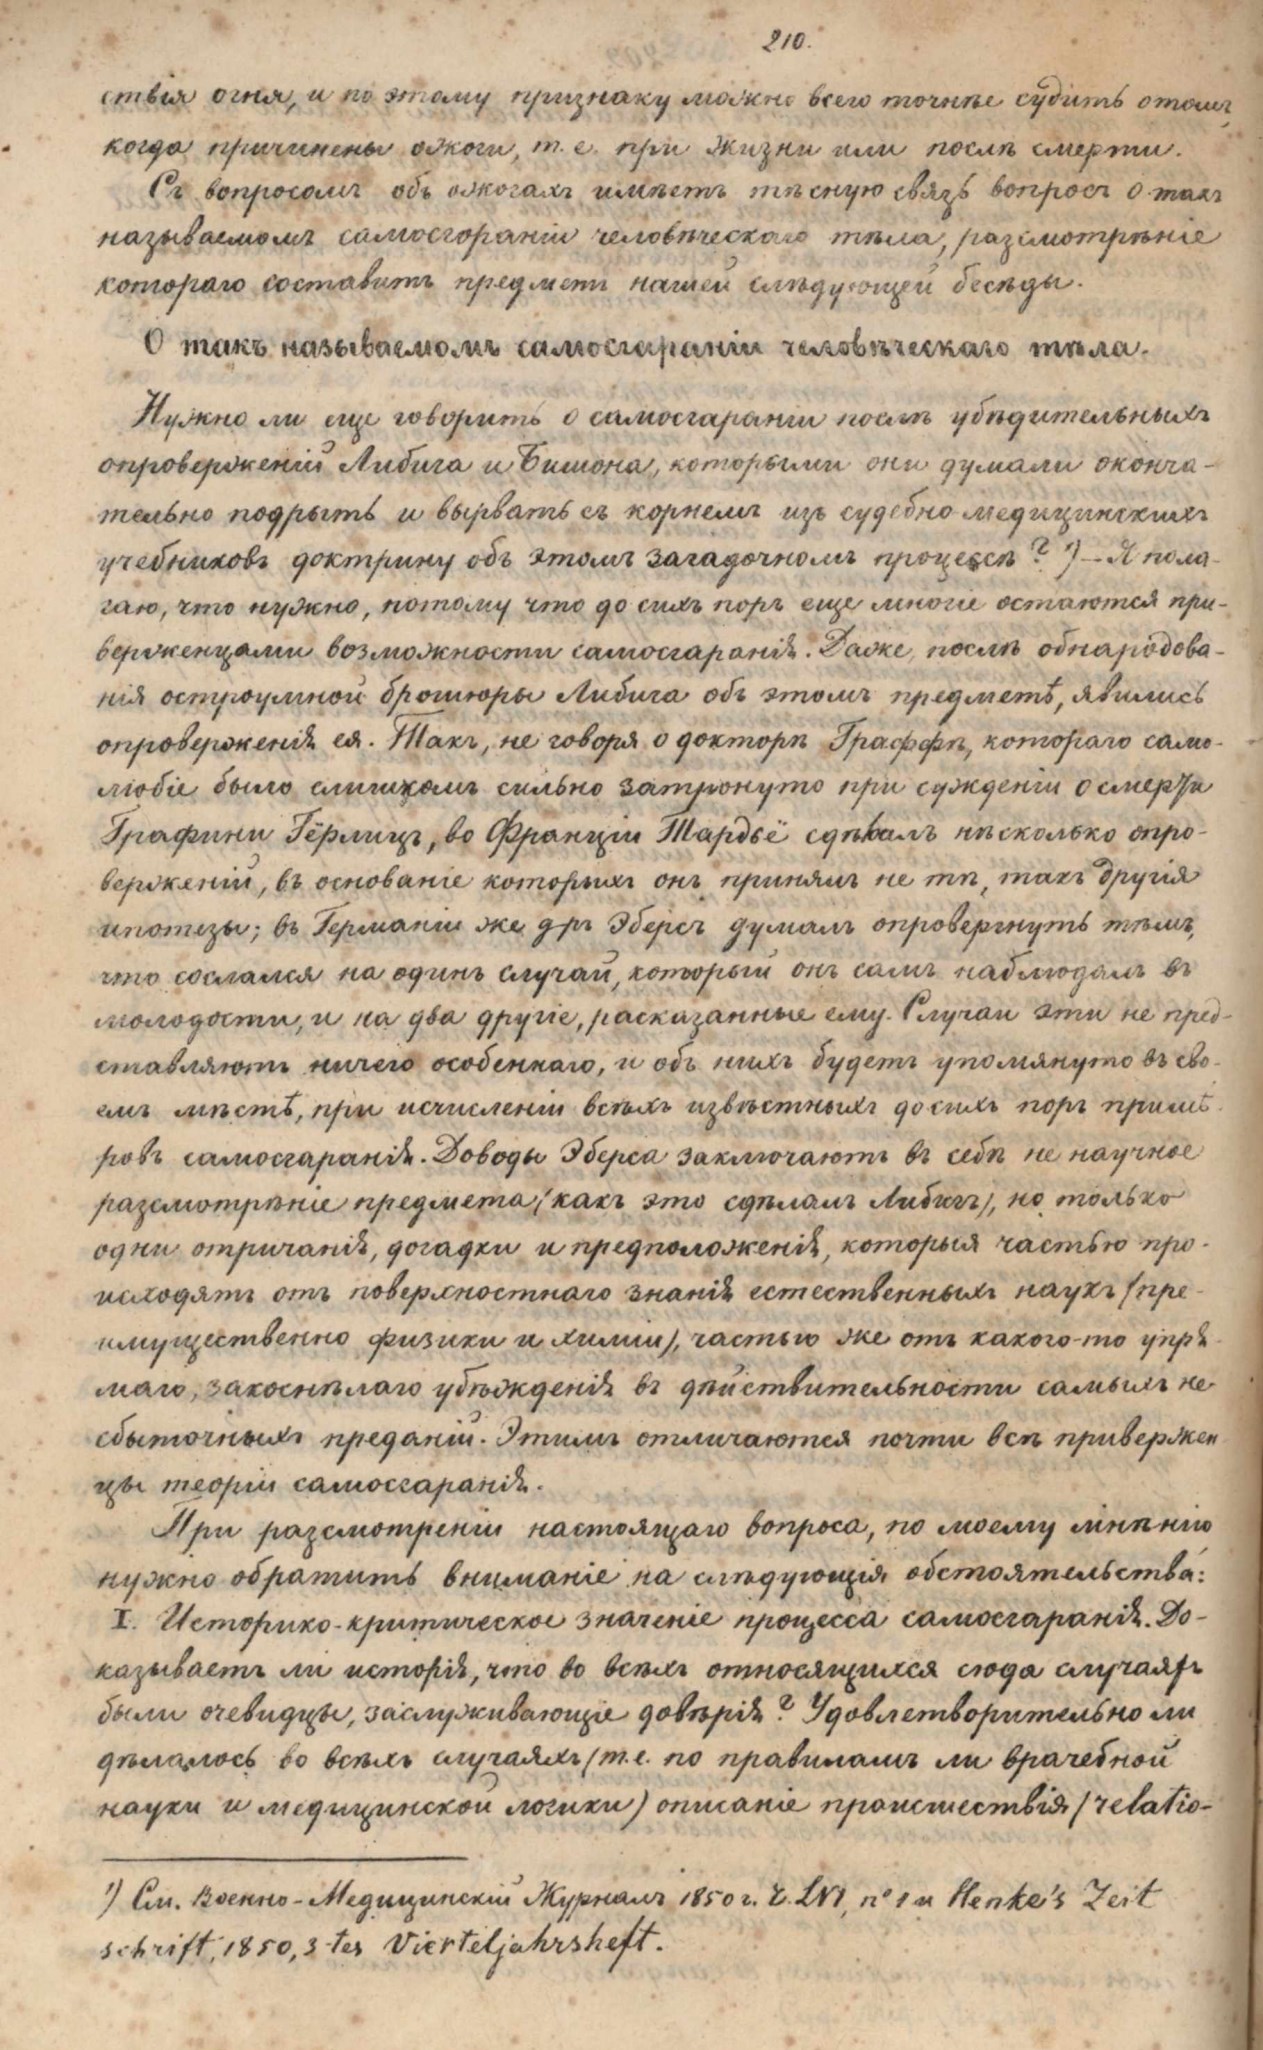 210.
ствія огня, и по этому признаку можно всего точнѣе судить о томъ,
когда причинены ожоги, т. е. при жизни или послѣ смерти.
Съ вопросомъ объ ожогахъ имѣетъ тѣсную связь вопросъ о такъ
называемомъ самосгораніи человѣческаго тѣла, разсмотрѣніе
котораго составитъ предметъ нашей слѣдующей бесѣды.
О такъ называемомъ самосгараніи человѣческаго тѣла.
Нужно ли еще говорить о самосгараніи послѣ убѣдительныхъ
опроверженій Либига и Бишона, которыми они думали оконча-
тельно подрыть и вырвать съ корнемъ изъ судебно-медицинскихъ
учебниковъ доктрину объ этомъ загадочномъ процессѣ? ¹) — Я пола-
гаю, что нужно, потому что до сихъ поръ еще многіе остаются при-
верженцами возможности самосгаранія. Даже, послѣ обнародова-
нія остроумной брошюры Либига объ этомъ предметѣ, явились
опроверженія ея. Такъ, не говоря о докторѣ Граффѣ, котораго само-
любіе было слишкомъ сильно затронуто при сужденіи о смерти
Графини Гёрлицъ, во Франціи Тардьё сдѣлалъ нѣсколько опро-
верженій, въ основаніе которыхъ онъ принялъ не тѣ, такъ другія
ипотезы; въ Германіи же д-ръ Эберсъ думалъ опровергнуть тѣмъ,
что сослался на одинъ случай, который онъ самъ наблюдалъ въ
молодости, и на два другіе, расказанные ему. Случаи эти не пред-
ставляютъ ничего особеннаго, и объ нихъ будетъ упомянуто въ сво-
емъ мѣстѣ, при исчисленіи всѣхъ извѣстныхъ до сихъ поръ примѣ-
ровъ самосгаранія. Доводы Эберса заключаютъ въ себѣ не научное
разсмотрѣніе предмета (какъ это сдѣлалъ Либигъ), но только
одни отричанія, догадки и предположенія, которыя частью про-
исходятъ отъ поверхностнаго знанія естественныхъ наукъ (пре-
имущественно физики и химіи), частью же отъ какого-то упря-
маго, закоснѣлаго убѣжденія въ дѣйствительности самыхъ не-
сбыточныхъ преданій. Этимъ отличаются почти всѣ привержен
цы теоріи самосгаранія.
При разсмотреніи настоящаго вопроса, по моему мнѣнію
нужно обратить вниманіе на слѣдующія обстоятельства:
I. Историко-критическое значеніе процесса самосгаранія. До-
казываетъ ли исторія, что во всѣхъ относящихся сюда случаяхъ
были очевидцы, заслуживающіе довѣрія? Удовлетворительно ли
дѣлалось во всѣхъ случаяхъ (т.е. по правиламъ ли врачебной
науки и медицинской логики) описаніе происшествія (relatio-
¹) См. Военно-Медицинскій Журналъ 1850 г. Ч. LVI, n° 1 и Henke's Zeit
schrift, 1850, 3-tes Vierteljahrsheft.